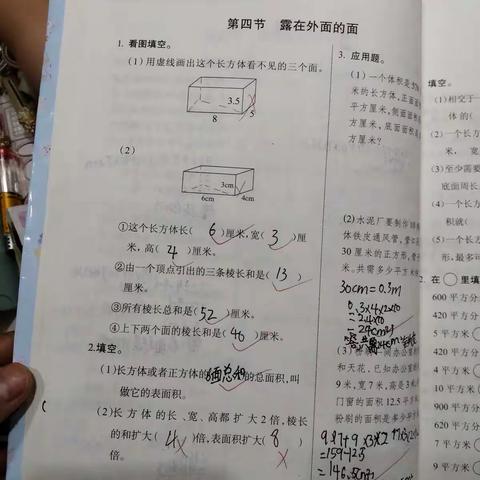 第四节 露在外面的面
1. 看图填空。
(1)用虚线画出这个长方体看不见的三个面。
3.5
8
5
(2)
3cm
6cm
4cm
①这个长方体长( 6 )厘米,宽( 3 )厘
米,高( 4 )厘米。
②由一个顶点引出的三条棱长和是( 13 )
厘米。
③所有棱长总和是( 52 )厘米。
④上下两个面的棱长和是( 40 )厘米。
2.填空。
(1)长方体或者正方体的 的总面积,叫
做它的表面积。
(2)长方体的长、宽、高都扩大2倍,棱长
的和扩大( 4 )倍,表面积扩大( 8 )
倍。
3. 应用题。
(1)一个体积是
米的长方体,正面面
平方厘米,侧面面积
方厘米,底面面积
方厘米?
(2)水泥厂要制作
体铁皮通风管,管
30厘米的正方形,管
米。共需多少平方
30cm=0.3m
0.3×4×2×10
=2.4×10
=24
和天花,已知办公
9米,宽7米,高是3米
门窗的面积12.5平方
粉刷的面积是多少平
=159-12.5
=146.5
填空。
(1)相交于一
体的(
(2)一个长方
米,宽
(3)至少需要
底面周长
(4)一个长方
积就(
(5)一个长方
形,最多可
2. 在○里填
600平方分
420平方分
5平方米
420平方分
4平方米
10平方米
900平方分
620平方分
7平方米
9平方米